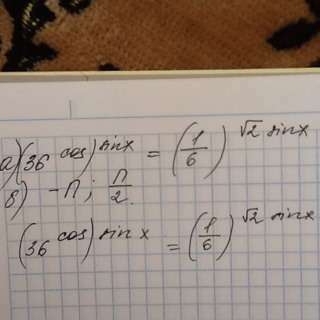 а) (36^cos)^sinx = (1/6)^√2 sinx
в) -П; П/2.
(36^cos)^sin x = (1/6)^√2 sinx